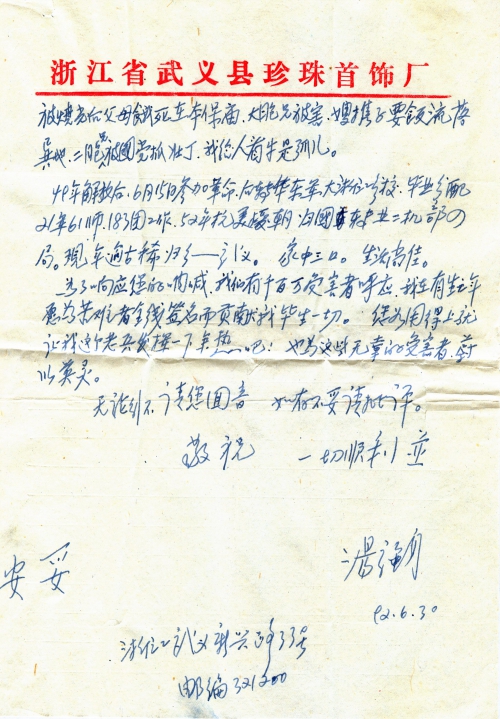 浙江省武义县珍珠首饰厂
被烧光后父母饿死在本保庙,大胞兄被害,嫂携子要饭流落
异地,二胞兄被国党抓壮丁,我给人看牛是孤儿。
49年解放后,6月15日参加革命,后 华东军大浙江分校,毕业分配
21军61师,183团工作,52年抗美援朝 归国 业二机部
局。现年逾古稀归乡——武义。家中三口。生活尚佳。
为了响应您的 ,我们有千百万受害者呼应,我在有生之年
愿为苦难者 签名而贡献我毕生一切。 用得上就
让我这个老兵发挥一下余热吧!也为这些无辜的受害者
以英灵。
无论 请您回音 如有不妥请批评。
敬祝 一切顺利 並
安 妥
汤
92.6.30
浙江武义新兴路33号
邮编321200